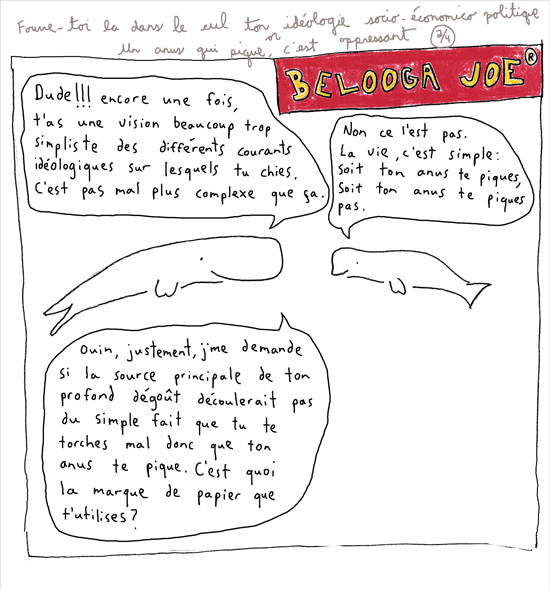 Fourre-toi la dans le cul ton idéologie socio-économico politique
ou
Un anus qui pique, c'est oppressant 2/4
BELOOGA JOE®
Dude!!! encore une fois,
t'as une vision beaucoup trop
simpliste des différents courants
idéologiques sur lesquels tu chies.
C'est pas mal plus complexe que ça.
Non ce l'est pas.
La vie, c'est simple:
soit ton anus te piques,
soit ton anus te piques
pas.
Ouin, justement, j'me demande
si la source principale de ton
profond dégoût découlerait pas
du simple fait que tu te
torches mal donc que ton
anus te pique. C'est quoi
la marque de papier que
t'utilises?